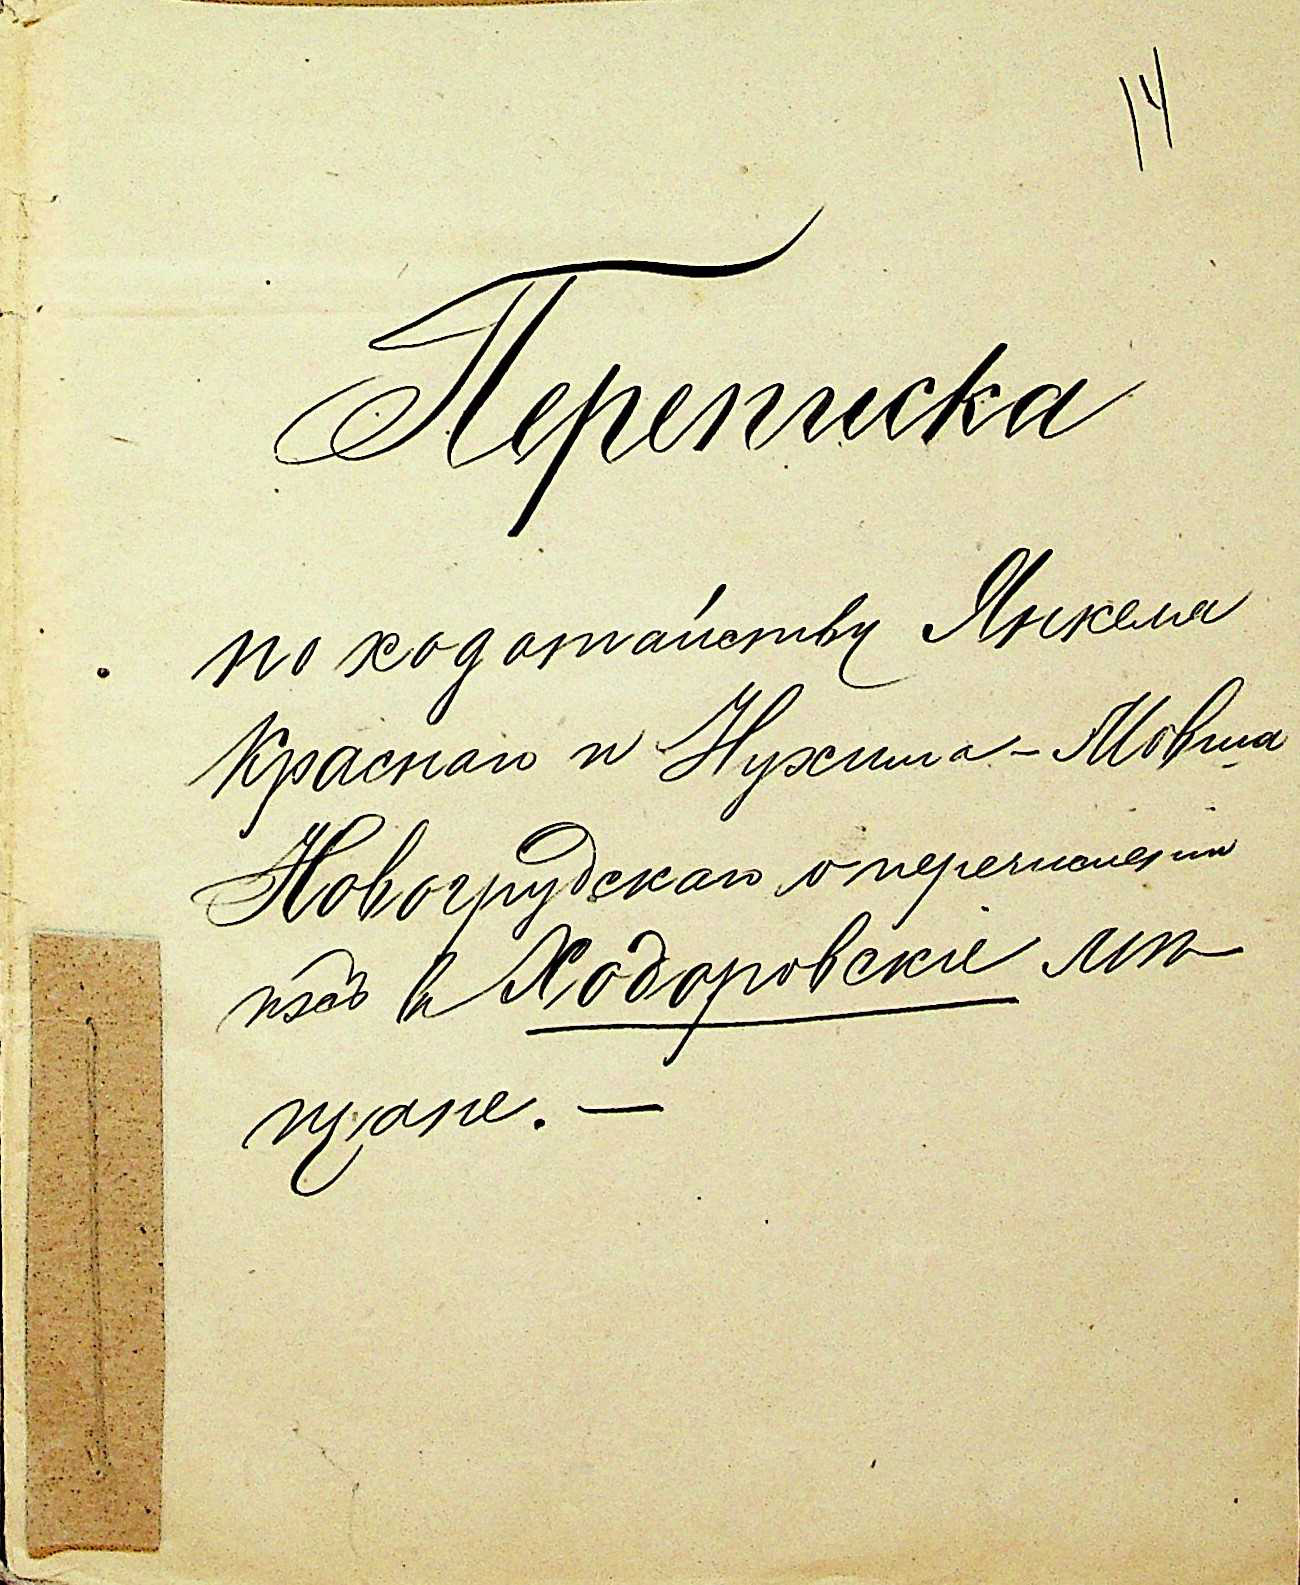 14
Переписка
по ходатайству Янкеля
Краснаго и Нухима-Мовша
Новогрудскаго о перечислении
ихъ въ Ходоровскіе мѣ
щане. —